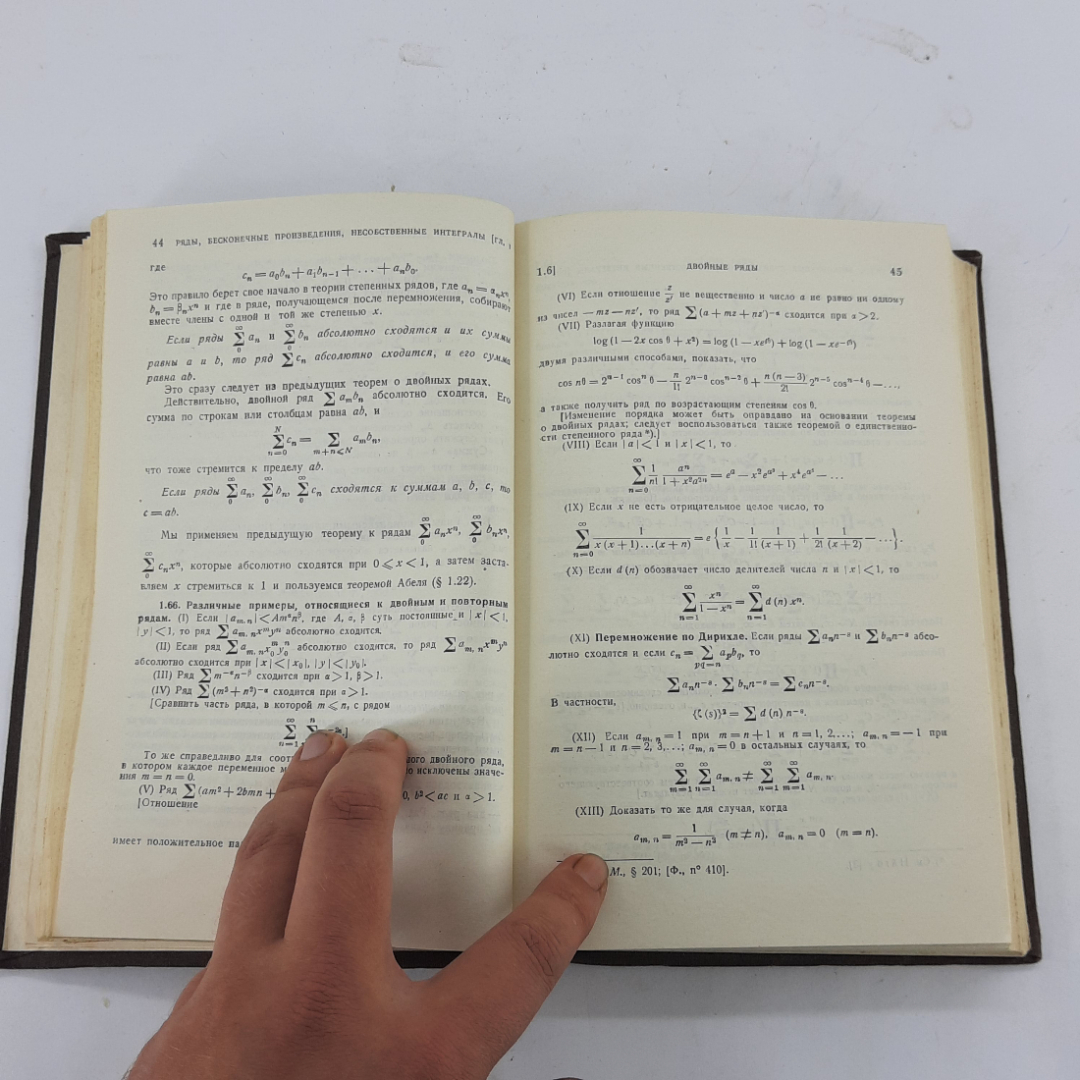 44 РЯДЫ, БЕСКОНЕЧНЫЕ ПРОИЗВЕДЕНИЯ, НЕСОБСТВЕННЫЕ ИНТЕГРАЛЫ [ГЛ.
где
cₙ = a₀bₙ + a₁bₙ₋₁ + ... + aₙb₀.
Это правило берет свое начало в теории степенных рядов, где aₙ = αₙxⁿ,
bₙ = βₙxⁿ и где в ряде, получающемся после перемножения, собирают
вместе члены с одной и той же степенью x.
Если ряды ∑₀^∞ aₙ и ∑₀^∞ bₙ абсолютно сходятся и их суммы
равны a и b, то ряд ∑cₙ абсолютно сходится, и его сумма
равна ab.
Это сразу следует из предыдущих теорем о двойных рядах.
Действительно, двойной ряд ∑aₘbₙ абсолютно сходится. Его
сумма по строкам или столбцам равна ab, и
∑ₙ₌₀^N cₙ = ∑ₘ₊ₙ≤N aₘbₙ,
что тоже стремится к пределу ab.
Если ряды ∑₀^∞ aₙ, ∑₀^∞ bₙ, ∑₀^∞ cₙ сходятся к суммам a, b, c, то
c = ab.
Мы применяем предыдущую теорему к рядам ∑₀^∞ aₙxⁿ, ∑₀^∞ bₙxⁿ,
∑₀^∞ cₙxⁿ, которые абсолютно сходятся при 0 ≤ x < 1, а затем заста-
вляем x стремиться к 1 и пользуемся теоремой Абеля (§ 1.22).
1.66. Различные примеры, относящиеся к двойным и повторным
рядам. (I) Если |aₘ,ₙ| < Am^α n^β, где A, α, β суть постоянные и |x| < 1,
|y| < 1, то ряд ∑aₘ,ₙxᵐyⁿ абсолютно сходится.
(II) Если ряд ∑aₘ,ₙx₀ᵐy₀ⁿ абсолютно сходится, то ряд ∑aₘ,ₙxᵐyⁿ
абсолютно сходится при |x| < |x₀|, |y| < |y₀|.
(III) Ряд ∑m^−α n^−β сходится при α > 1, β > 1.
(IV) Ряд ∑(m² + n²)^−α сходится при α > 1.
[Сравнить часть ряда, в которой m ≤ n, с рядом
∑ₙ₌₁^∞ ∑ⁿ −2α.]
То же справедливо для соот ого двойного ряда,
в котором каждое переменное исключены значе-
ния m = n = 0.
(V) Ряд ∑(am² + 2bmn + 0, b² < ac и α > 1.
[Отношение
имеет положительное
1.6] ДВОЙНЫЕ РЯДЫ 45
(VI) Если отношение z/z′ не вещественно и число a не равно ни одному
из чисел −mz − nz′, то ряд ∑(a + mz + nz′)^−α сходится при α > 2.
(VII) Разлагая функцию
log (1 − 2x cos θ + x²) = log (1 − xe^iθ) + log (1 − xe^−iθ)
двумя различными способами, показать, что
cos nθ = 2ⁿ⁻¹ cosⁿ θ − n/1! 2ⁿ⁻³ cosⁿ⁻² θ + n (n − 3)/2! 2ⁿ⁻⁵ cosⁿ⁻⁴ θ − ...,
а также получить ряд по возрастающим степеням cos θ.
[Изменение порядка может быть оправдано на основании теоремы
о двойных рядах; следует воспользоваться также теоремой о единственно-
сти степенного ряда *).]
(VIII) Если |a| < 1 и |x| < 1, то
∑ₙ₌₀^∞ 1/n! aⁿ/(1 + x²a²ⁿ) = e^a − x²e^(a³) + x⁴e^(a⁵) − ...
(IX) Если x не есть отрицательное целое число, то
∑ₙ₌₀^∞ 1/(x (x + 1)...(x + n)) = e {1/x − 1/1! 1/(x + 1) + 1/2! 1/(x + 2) − ...}.
(X) Если d (n) обозначает число делителей числа n и |x| < 1, то
∑ₙ₌₁^∞ xⁿ/(1 − xⁿ) = ∑ₙ₌₁^∞ d (n) xⁿ.
(XI) Перемножение по Дирихле. Если ряды ∑aₙn^−s и ∑bₙn^−s абсо-
лютно сходятся и если cₙ = ∑_{pq=n} a_p b_q, то
∑aₙn^−s · ∑bₙn^−s = ∑cₙn^−s.
В частности,
{ζ (s)}² = ∑ d (n) n^−s.
(XII) Если aₘ,ₙ = 1 при m = n + 1 и n = 1, 2,...; aₘ,ₙ = −1 при
m = n − 1 и n = 2, 3,...; aₘ,ₙ = 0 в остальных случаях, то
∑ₘ₌₁^∞ ∑ₙ₌₁^∞ aₘ,ₙ ≠ ∑ₙ₌₁^∞ ∑ₘ₌₁^∞ aₘ,ₙ.
(XIII) Доказать то же для случая, когда
aₘ,ₙ = 1/(m² − n²) (m ≠ n), aₘ,ₙ = 0 (m = n).
М., § 201; [Ф., n° 410].